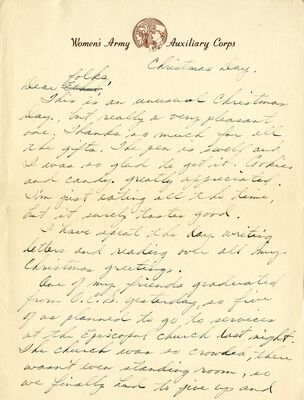 Women's Army Auxiliary Corps
Christmas Day.
Dear folks,
This is an unusual Christmas
Day, but really a very pleasant
one. Thanks so much for all
the gifts. The pen is swell and
I was so glad to get it. Cookies
and candy greatly appreciated.
I'm just eating all the time,
but it surely tastes good.
I have spent the day writing
letters and reading over all my
Christmas greetings.
One of my friends graduated
from O.C.S. yesterday, so five
of us planned to go to services
at the Episcopal church last night.
The church was so crowded, there
wasn't even standing room, so
we finally had to give up and